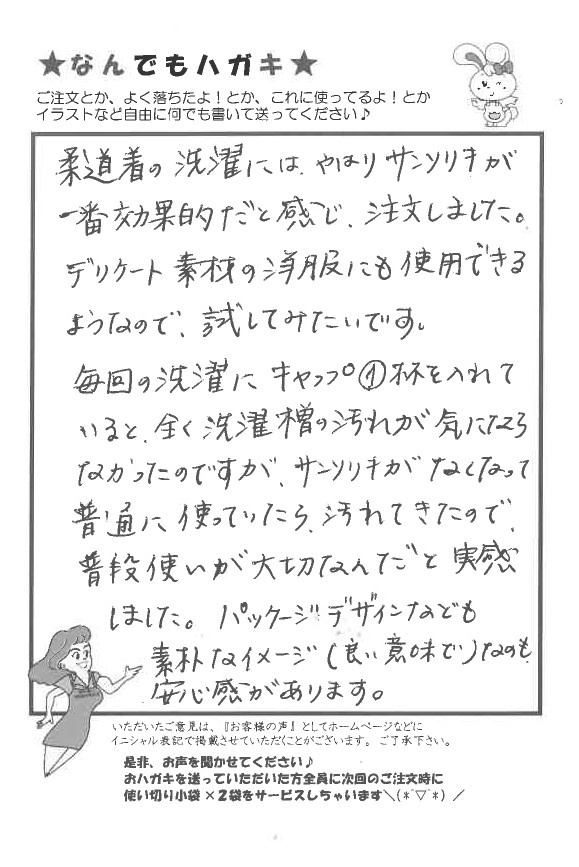 ★なんでもハガキ★
ご注文とか、よく落ちたよ！とか、これに使ってるよ！とか
イラストなど自由に何でも書いて送ってください♪
柔道着の洗濯には、やはりサンソリキが
一番効果的だと感じ、注文しました。
デリケート素材の洋服にも使用できる
ようなので、試してみたいです。
毎回の洗濯にキャップ①杯を入れて
いると、全く洗濯槽の汚れが気になら
なかったのですが、サンソリキがなくなって
普通に使っていたら、汚れてきたので、
普段使いが大切なんだと実感
しました。パッケージデザインなども
素朴なイメージ（良い意味で）なのも、
安心感があります。
いただいたご意見は、『お客様の声』としてホームページなどに
イニシャル表記で掲載させていただくことがございます。ご了承下さい。
是非、お声を聞かせてください♪
おハガキを送っていただいた方全員に次回のご注文時に
使い切り小袋×2袋をサービスしちゃいます＼(*ﾟ▽ﾟ*)／